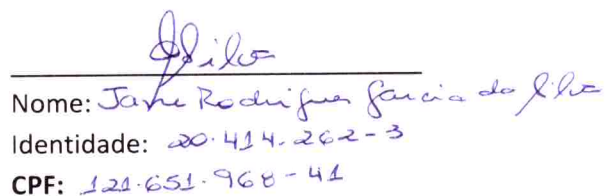 JSilva
Nome: Jane Rodrigues Garcia da Silva
Identidade: 20.414.262-3
CPF: 121.651.968-41